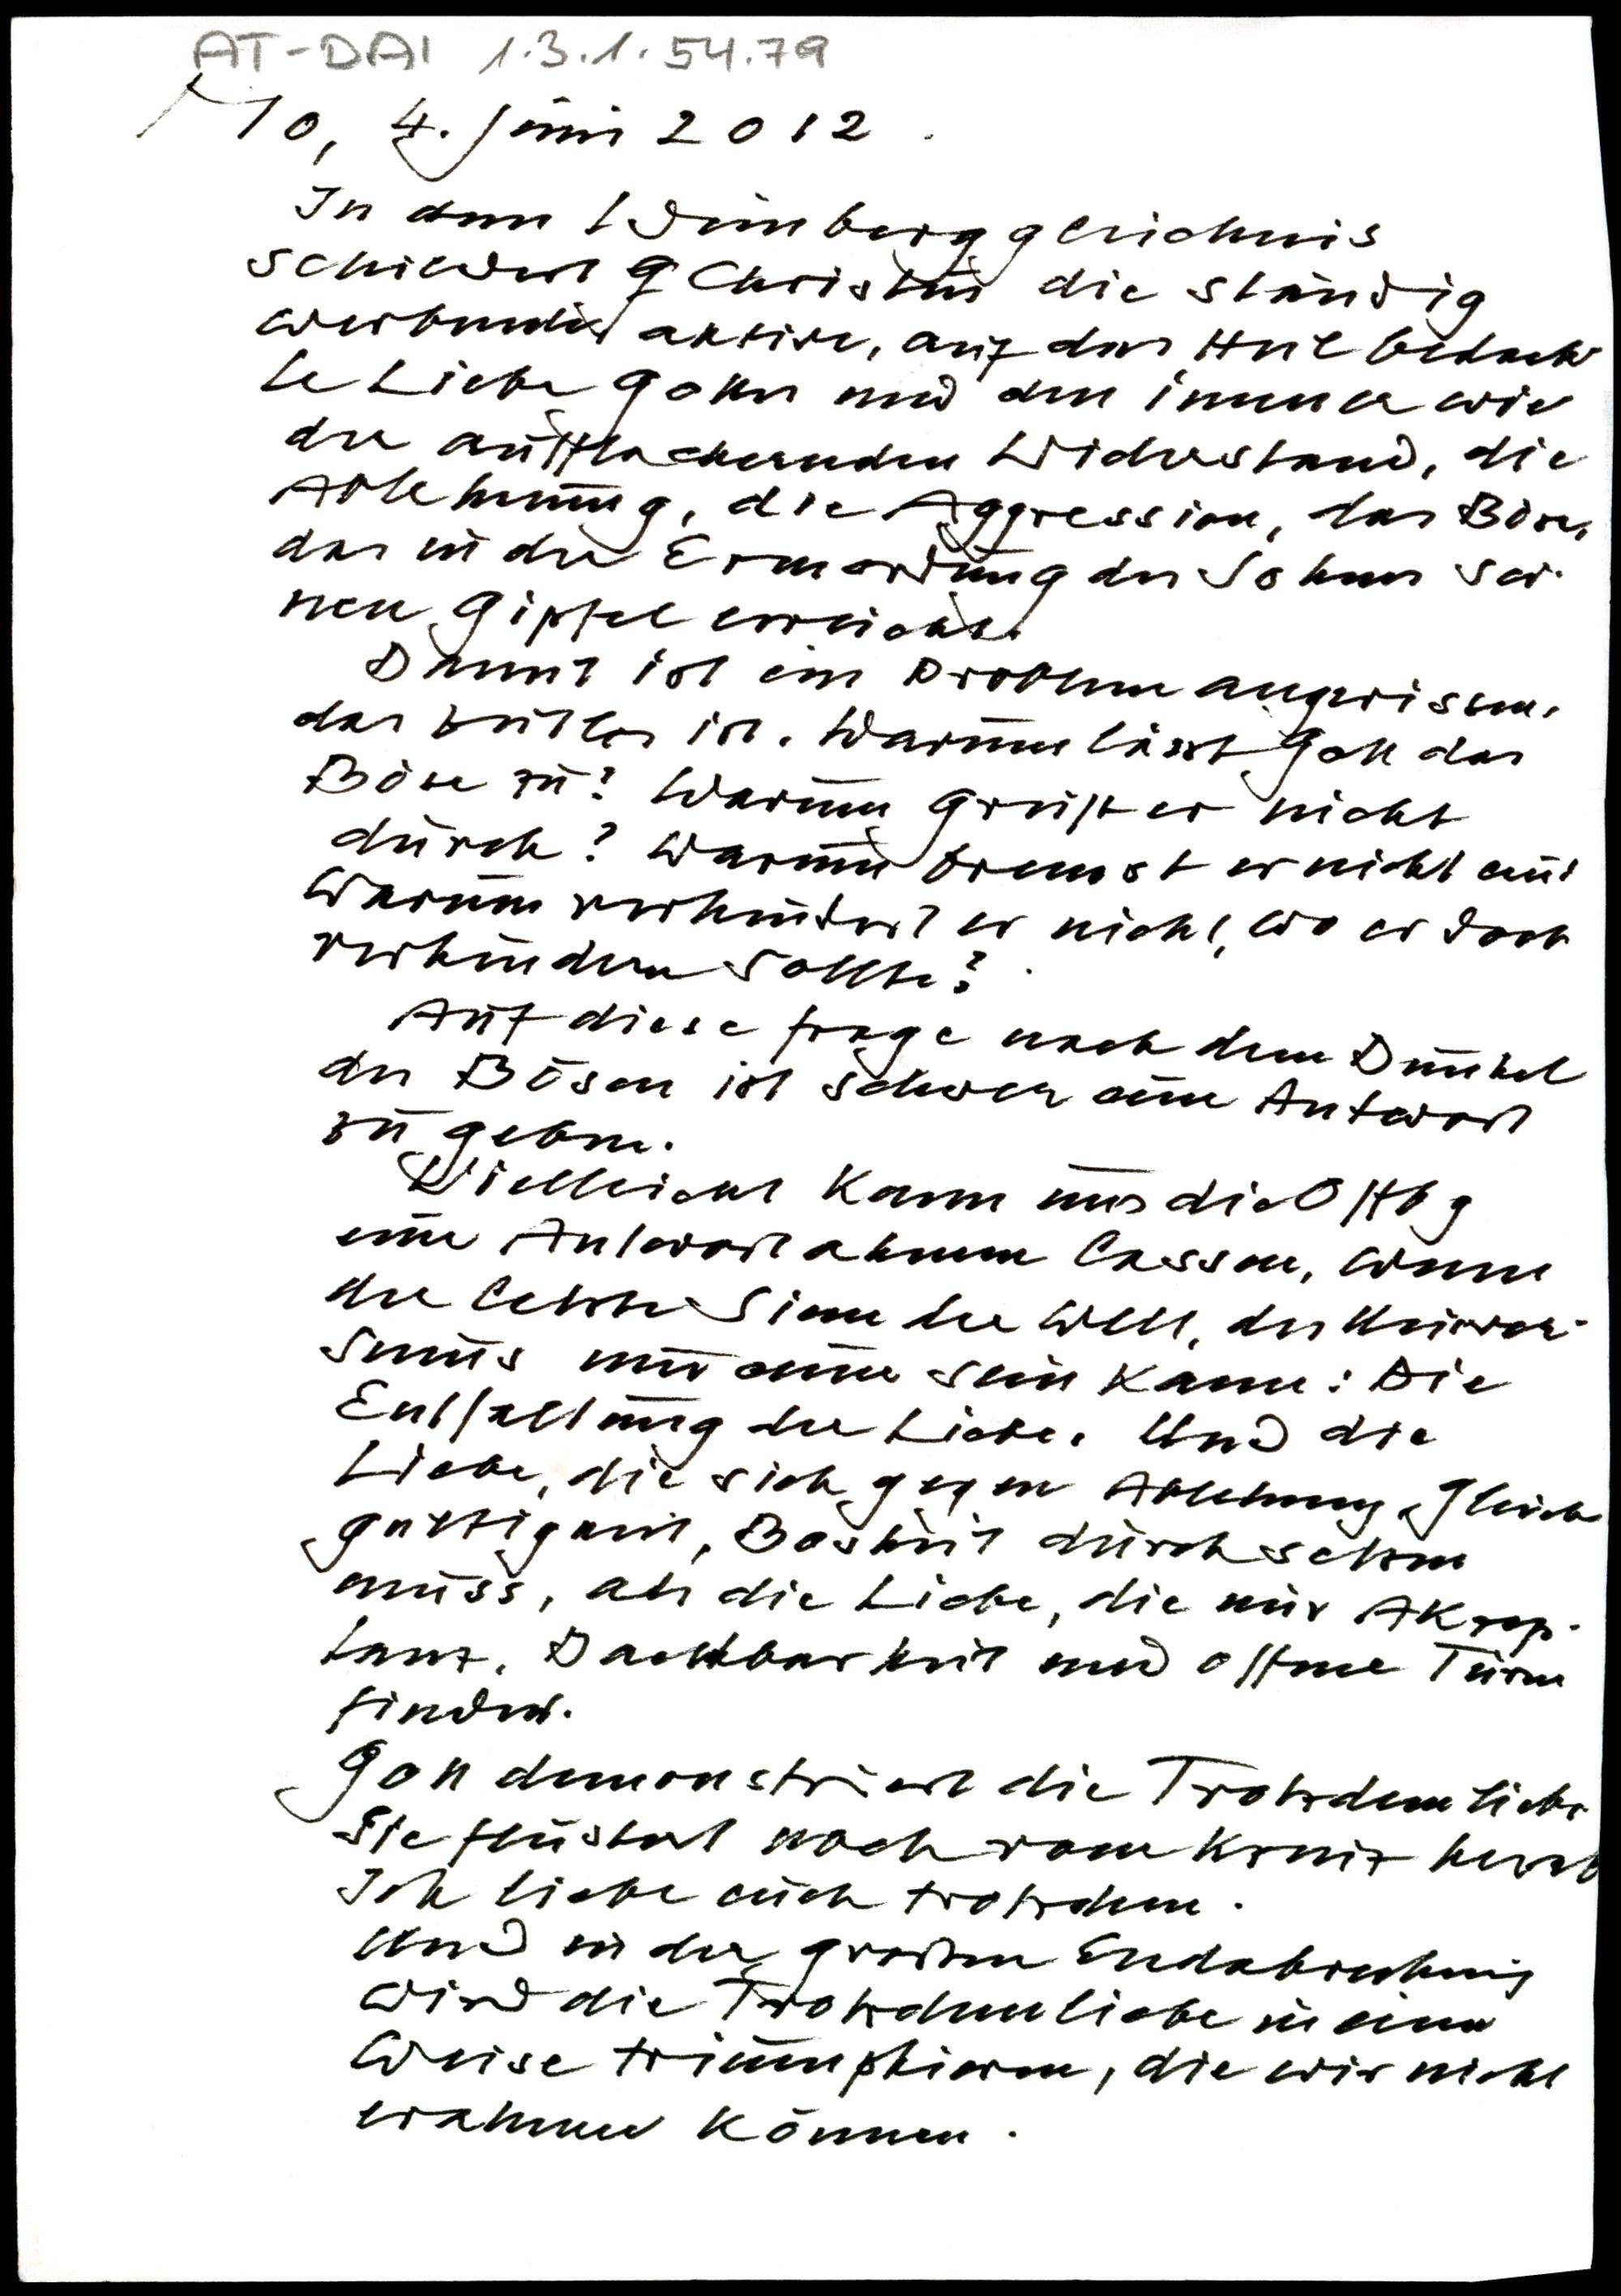 AT-DAI 1.3.1.54.79
Mo, 4. Juni 2012.
In dem Weinberggleichnis
schildert Christus die ständig
werbende, aktive, auf das Heil bedach
te Liebe Gottes und den immer wie
der aufflackernden Widerstand, die
Ablehnung, die Aggression, das Böse,
das in der Ermordung des Sohnes sei-
nen Gipfel erreicht.
Damit ist ein Problem angerissen,
das zeitlos ist. Warum lässt Gott das
Böse zu? Warum greift er nicht
durch? Warum bremst er nicht ein?
Warum verhindert er nicht, wo er doch
verhindern sollte?
Auf diese Frage nach dem Dunkel
des Bösen ist schwer eine Antwort
zu geben.
Vielleicht kann uns die Offbg
eine Antwort ahnen lassen, wenn
der letzte Sinn der Welt, des Univer-
sums nur einer sein kann: Die
Entfaltung der Liebe. Und die
Liebe, die sich gegen Ablehnung, Gleich
gültigkeit, Bosheit durchsetzen
muss, als die Liebe, die nur Akzep-
tanz, Dankbarkeit und offene Türen
findet.
Gott demonstriert die Trotzdemliebe
Sie flüstert noch vom Kreuz herab
Ich liebe euch trotzdem.
Und in der großen Endabrechnung
wird die Trotzdemliebe in einer
Weise triumphieren, die wir nicht
erahnen können.